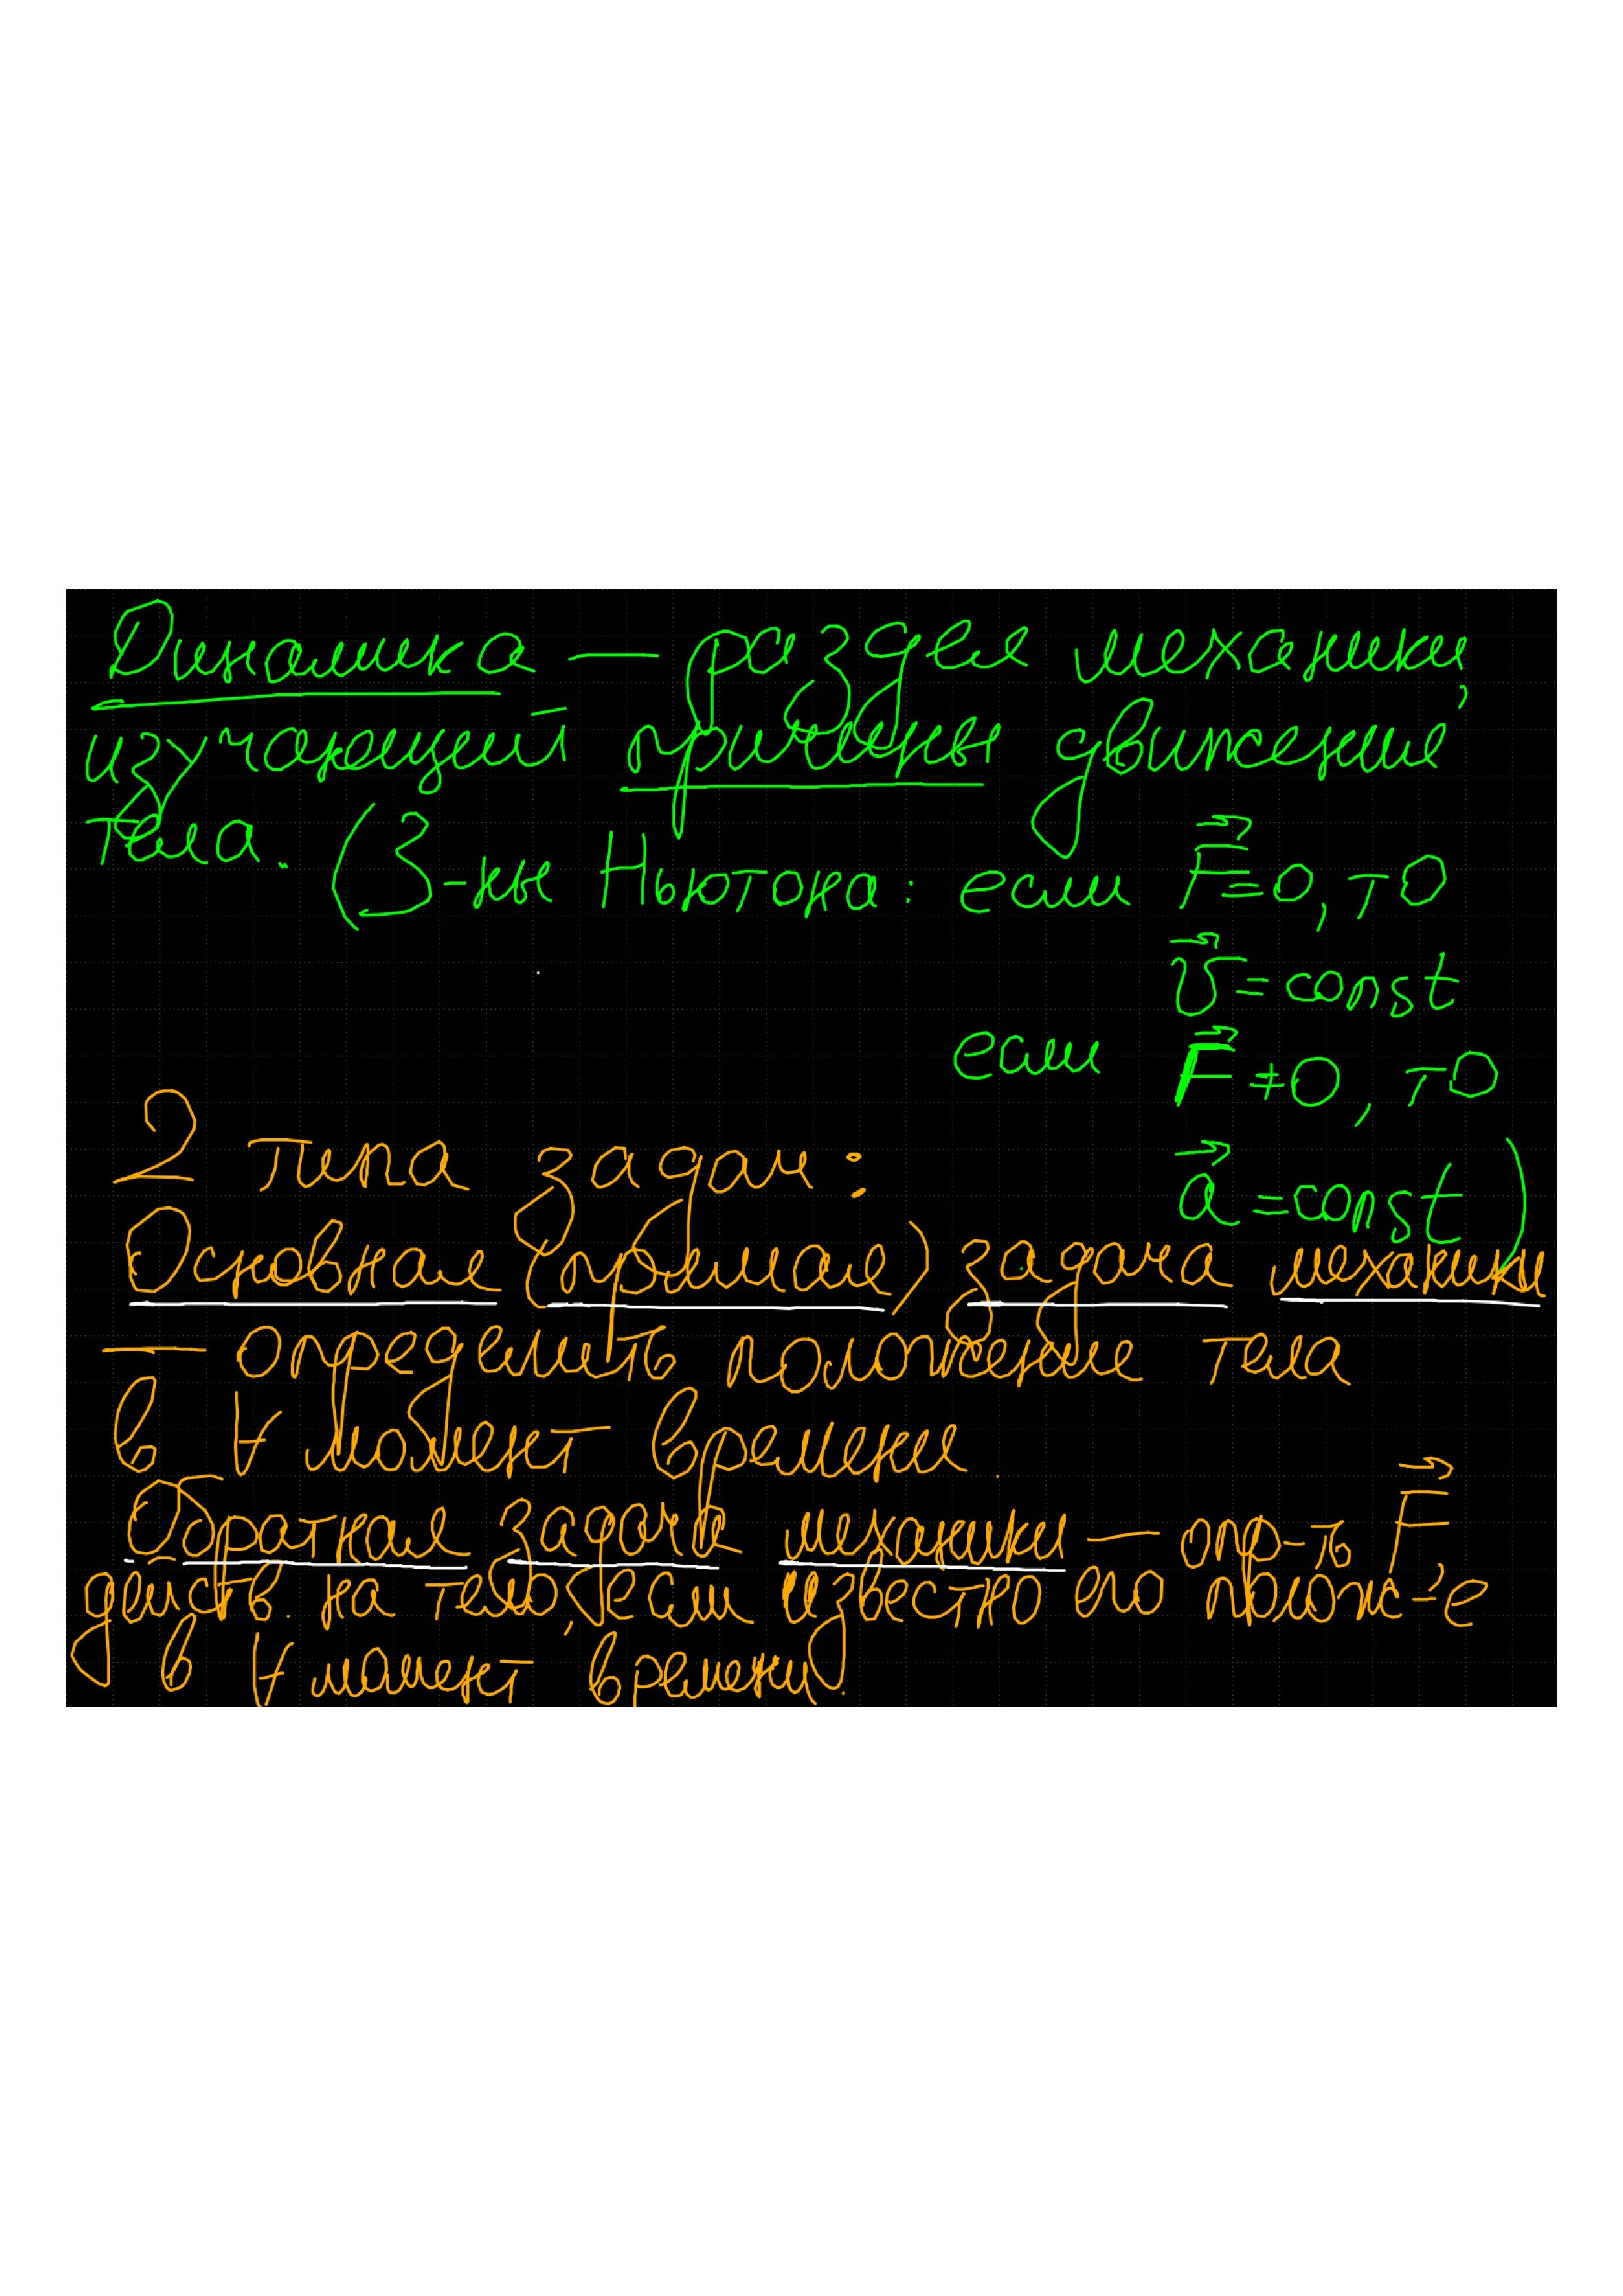 Динамика — раздел механики,
изучающий причины движения
тела. (З-ны Ньютона: если F⃗=0, то
v⃗=const
если F⃗≠0, то
a⃗=const)
2 типа задач:
Основная (прямая) задача механики
— определить положение тела
в ∀ момент времени.
Обратная задача механики — опр-ть F⃗
действ. на тело, если известно его полож-е
в ∀ момент времени.